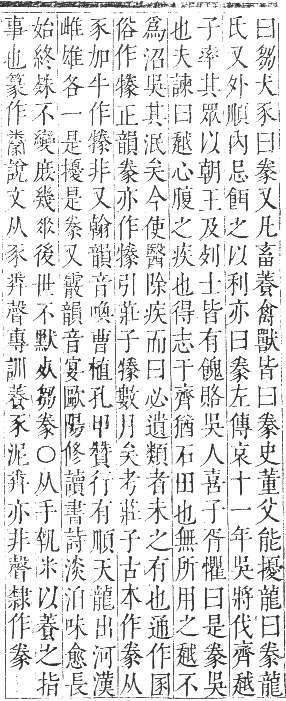 曰芻犬豕曰豢又凡畜養禽獸皆曰豢史董父能擾龍曰豢龍
氏又外順內忌餌之以利亦曰豢左傳哀十一年吳將伐齊越
子率其眾以朝王及列士皆有餽賂吳人喜子胥懼曰是豢吳
也夫諫曰越心腹之疾也得志于齊猶石田也無所用之越不
爲沼吳其泯矣今使醫除疾而曰必遺類者未之有也通作圂
俗作㹖正韻豢亦作㹖引莊子㹖數月矣考莊子古本作豢从
豕加牛作㹖非又翰韻音喚曹植孔甲贊行有順天龍出河漢
雌雄各一是擾是豢又霰韻音宴歐陽修讀書詩淡泊味愈長
始終殊不變庶幾垂後世不默㱕芻豢○从手䋛米以養之指
事也篆作𢍏說文从豕𢍏聲專訓養豕泥𢍏亦非聲隸作豢